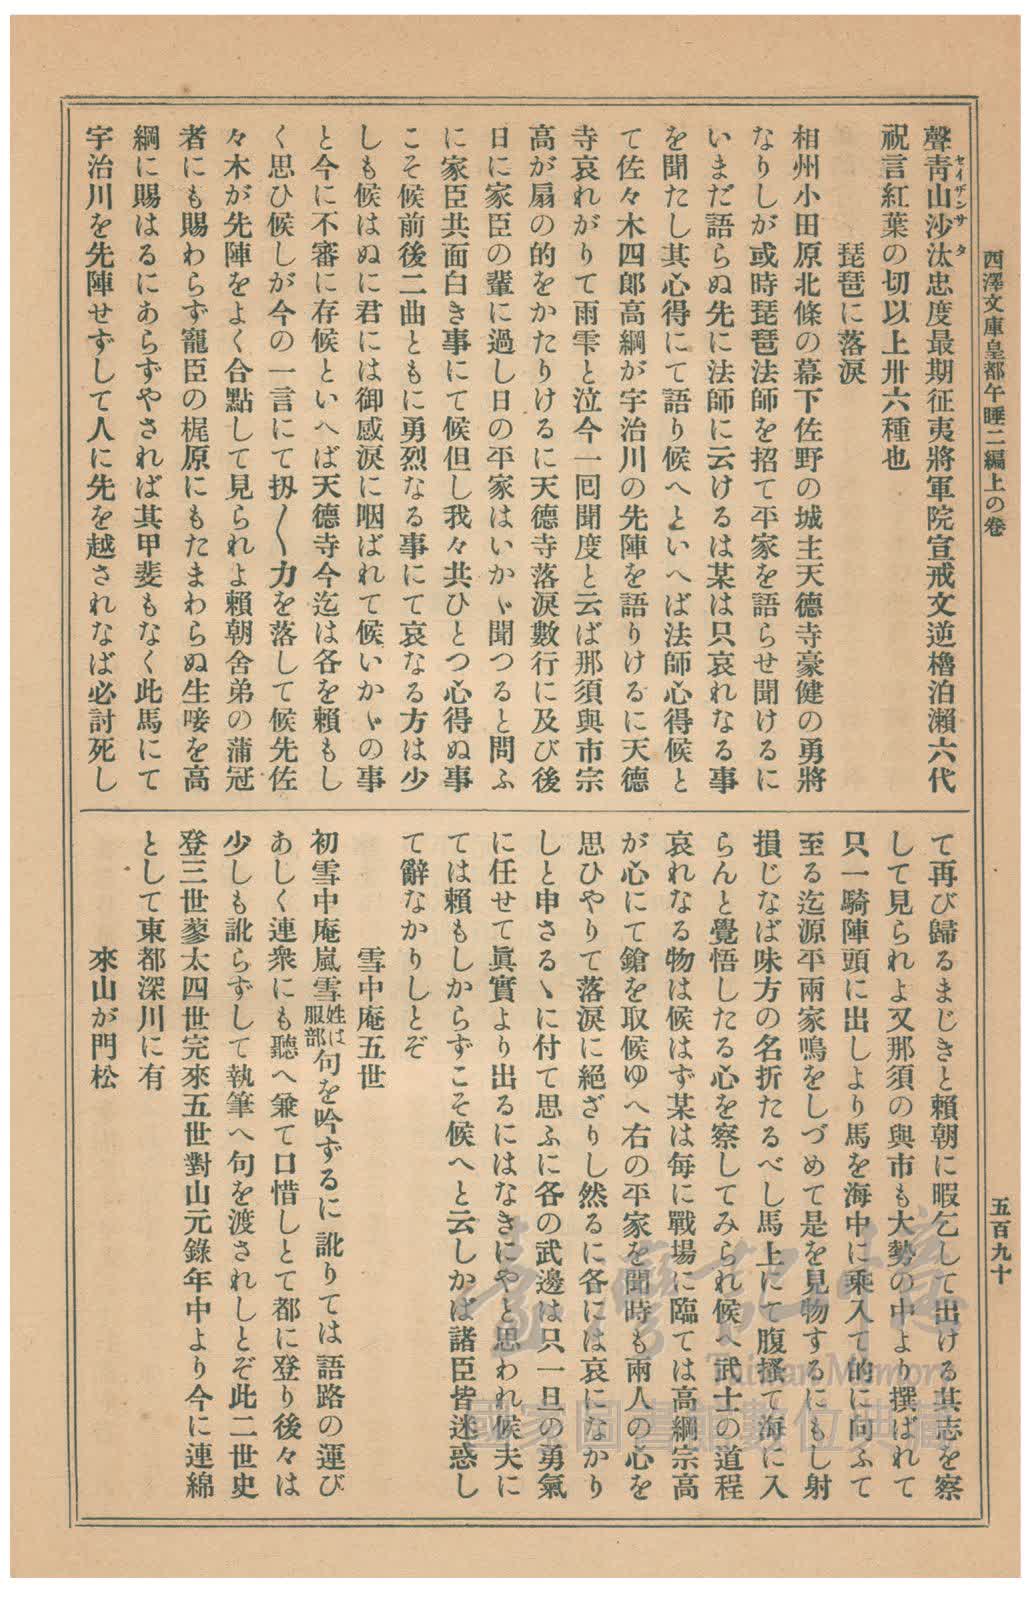 西澤文庫皇都午睡二編上の卷
五百九十
聲靑山沙汰忠度最期征夷將軍院宣戒文逆櫓泊瀨六代
セイザンサタ
祝言紅葉の切以上卅六種也
琵琶に落淚
相州小田原北條の幕下佐野の城主天德寺豪健の勇將
なりしが或時琵琶法師を招て平家を語らせ聞けるに
いまだ語らぬ先に法師に云けるは某は只哀れなる事
を聞たし其心得にて語り候へといへば法師心得候と
て佐々木四郞高綱が宇治川の先陣を語りけるに天德
寺哀れがりて雨雫と泣今一囘聞度と云ば那須與市宗
高が扇の的をかたりけるに天德寺落淚數行に及び後
日に家臣の輩に過し日の平家はいかゞ聞つると問ふ
に家臣共面白き事にて候但し我々共ひとつ心得ぬ事
こそ候前後二曲ともに勇烈なる事にて哀なる方は少
しも候はぬに君には御感淚に咽ばれて候いかゞの事
と今に不審に存候といへば天德寺今迄は各を賴もし
く思ひ候しが今の一言にて扨〳〵力を落して候先佐
々木が先陣をよく合點して見られよ賴朝舍弟の蒲冠
者にも賜わらず寵臣の梶原にもたまわらぬ生唼を高
綱に賜はるにあらずやされば其甲斐もなく此馬にて
宇治川を先陣せずして人に先を越されなば必討死し
て再び歸るまじきと賴朝に暇乞して出ける其志を察
して見られよ又那須の與市も大勢の中より撰ばれて
只一騎陣頭に出しより馬を海中に乘入て的に向ふて
至る迄源平兩家鳴をしづめて是を見物するにもし射
損じなば味方の名折たるべし馬上にて腹搔て海に入
らんと覺悟したる心を察してみられ候へ武士の道程
哀れなる物は候はず某は每に戰場に臨ては高綱宗高
が心にて鎗を取候ゆへ右の平家を聞時も兩人の心を
思ひやりて落淚に絕ざりし然るに各には哀になかり
しと申さるゝに付て思ふに各の武邊は只一旦の勇氣
に任せて眞實より出るにはなきにやと思われ候夫に
ては賴もしからずこそ候へと云しかば諸臣皆迷惑し
て辭なかりしとぞ
雪中庵五世
初雪中庵嵐雪姓は服部句を吟ずるに訛りては語路の運び
あしく連衆にも聽へ兼て口惜しとて都に登り後々は
少しも訛らずして執筆へ句を渡されしとぞ此二世史
登三世蓼太四世完來五世對山元錄年中より今に連綿
として東都深川に有
來山が門松
臺灣記憶
Taiwan Memory
國家圖書館數位典藏